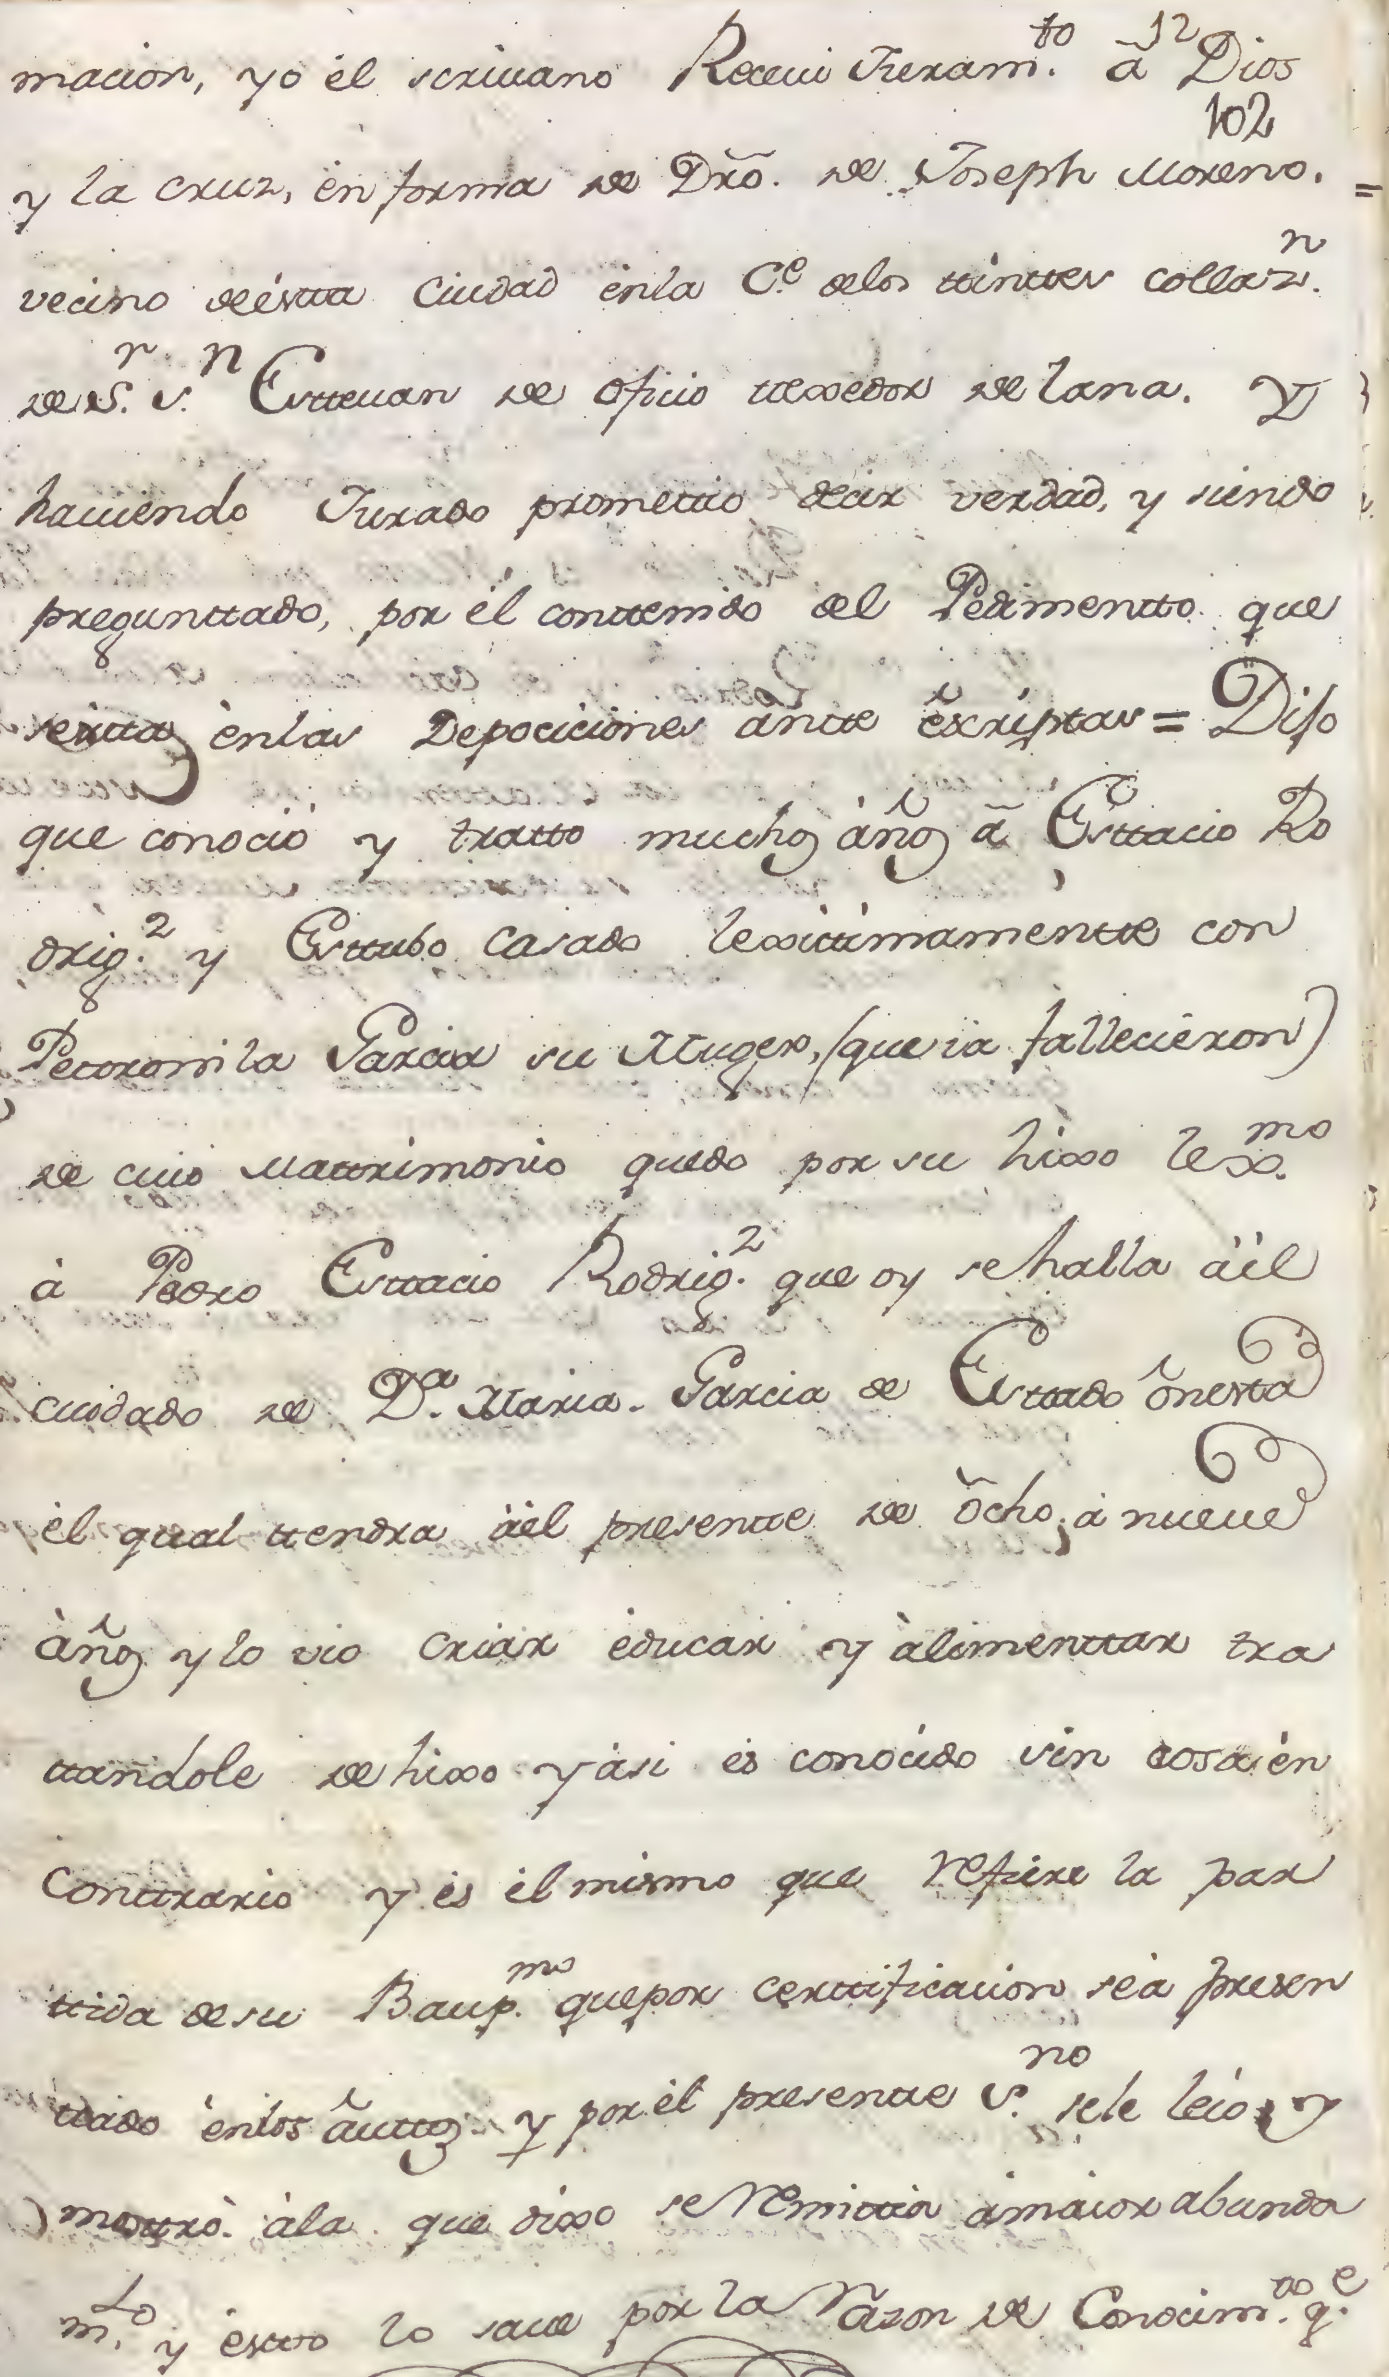 12
macion, yo el scrivano Receui Juram.to â Dios
102
y la cruz, en forma de Dro. de Joseph Moreno. =
vecino de éstta Ciudad enla C.e delos ttinttes collaz.n
de S.r S.n Esttevan de oficio ttexedor de lana. Y
haviendo Jurado promettio decir verdad, y siendo
preguntado, por él conttenido del Pedimentto que
se citta enlas Depociciones ante escriptas = Dijo
que conoció y tratto muchos años â Esttacio Ro
drig.z y Esttubo Casado lexittimamentte con
Petoronila Garcia su Muger, (que ia fallecieron)
de cuio Mattrimonio quedo por su hixo lex.mo
à Pedro Esttacio Rodrig.z que oy se halla àel
cuidado de D.a Maria Garcia de Esttado onesta
él qual ttendra àel presentte de ocho, à nueve
años y lo vio criar educar y àlimenttar tra
ttandole de hixo y àsi es conocido sin cosa en
Conttrario y és él mismo que refiere la par
ttida de su Baup.mo que por certtificacion seà presen
ttado enlos auttos y por él presentte S.no sele leio, y
mostró àla que dixo se remittia àmaior abunda
m.to y estto lo save por la razon de Conocim.to q.e